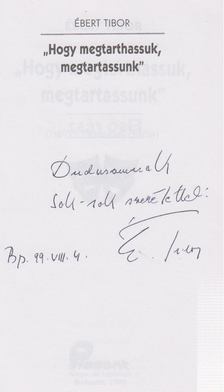 ÉBERT TIBOR
„Hogy megtarthassuk,
megtartassunk”
Dudusomnak
Sok-sok szeretettel:
É. Tibor
Bp. 99. VIII. 4.